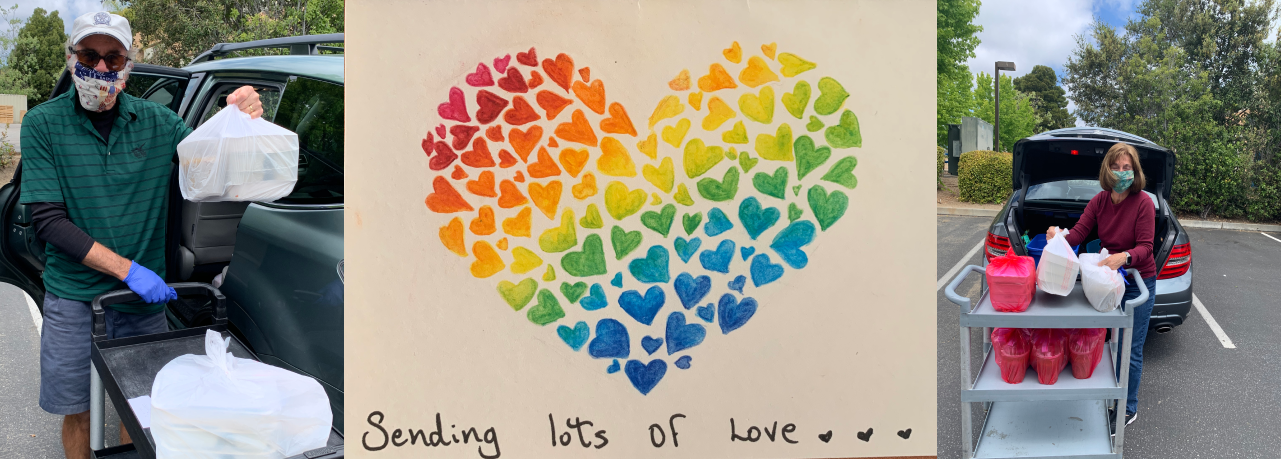 Sending lots of Love...